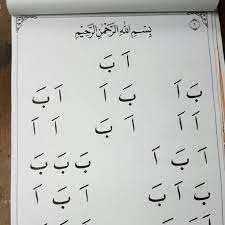 ١
بِسْمِ اللهِ الرَّحْمٰنِ الرَّحِيْمِ
اَ بَ
بَ اَ اَ بَ اَ بَ
اَ اَ اَ بَ اَ اَ
اَ اَ بَ بَ بَ بَ
بَ بَ اَ اَ بَ اَ